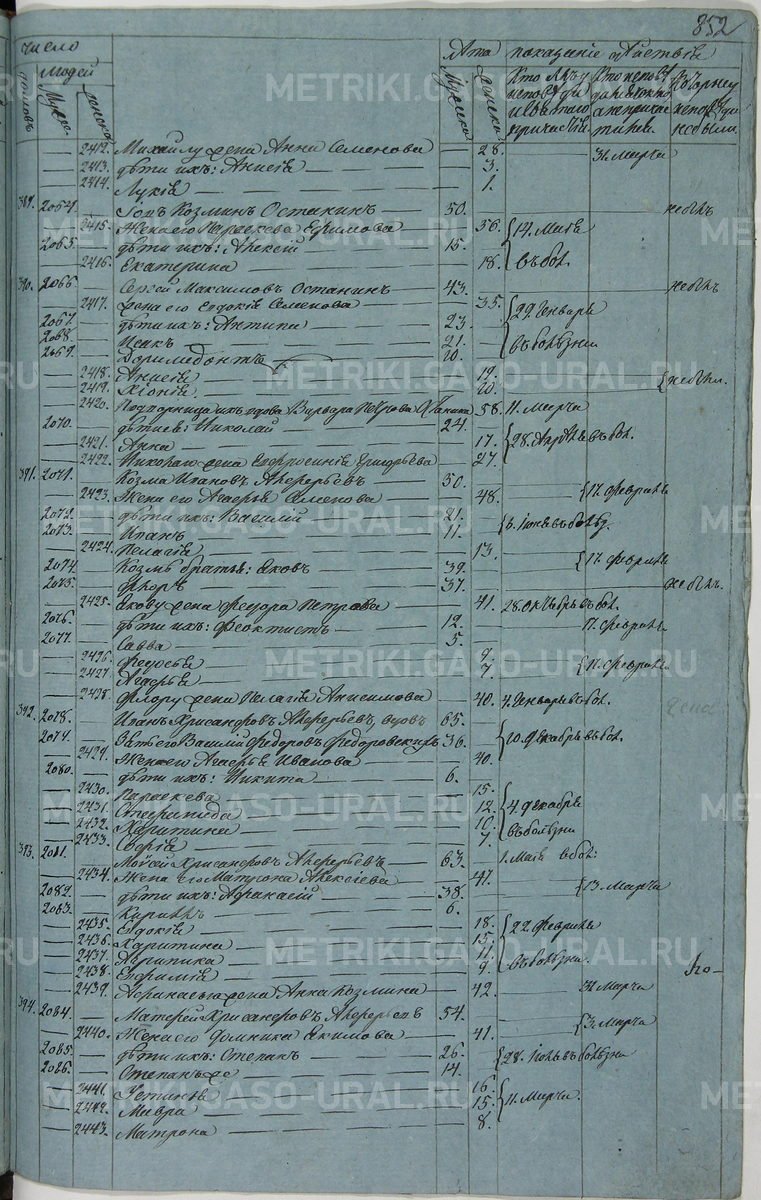 852
число
домовъ
людей
мужеска
женска
Лѣта
мужеска
женска
показаніе дѣйствія
Кто изъ
исповѣди
и св. таго
причастія
Кто исповѣ
дался токмо
а не прича
стился
исповѣди
не были
2412. Михайлу жена Анна Семенова 28. 31. Марта
2413. дѣти ихъ: Анисія 3.
2414. Лукія 1.
389. 2064. Іовъ Козминъ Останинъ 50. не былъ
2415. Жена его Параскева Ефимова 56. 14. Маія
2065. дѣти ихъ: Алексій 15.
2416. Екатерина 18. въ бол.
390. 2066. Сергей Максимовъ Останинъ 43. не былъ
2417. жена его Евдокія Семенова 35. 22. Генваря
2067. дѣти ихъ: Антипа 23.
2068. Исакъ 21. въ болѣзни
2069. Доримедонтъ 10.
2418. Анисія 19.
2419. Хіонія 20. не были.
2420. Подпорница ихъ вдова Варвара Петрова 58. 11. Марта
2070. дѣти ея: Николай 24.
2421. Анна 17. 28. въ бол.
2422. Николаю жена Евфросинія Григорьева 27.
391. 2071. Козма Ивановъ Аферьевъ 50.
2423. Жена его Агафья Семенова 48. 17. февраля
2072. дѣти ихъ: Василій 21.
2073. Иванъ 11. 6. Іюня въ болѣз.
2424. Пелагія 13.
2074. Козмѣ братья: Яковъ 39. 17. февраля
2075. Флоръ 37. не былъ.
2425. Якову жена Феодора Петрова 41. 28. октябрь въ бол.
2076. дѣти ихъ: Феоктистъ 12. 17. февраля
2077. Савва 5.
2426. Федосья 9.
2427. Агафья 7. 11. февраля
2428. Флору жена Пелагія Анисимова 40. 4. Генварь въ бол.
392. 2078. Иванъ Хрисанфовъ Аферьевъ, вдовъ 65.
2079. Зять его Василій Федоровъ Федоровскихъ 36. 10. Декабрь въ бол.
2429. Жена его Агафья Иванова 40.
2080. дѣти ихъ: Никита 6.
2430. Параскева 15.
2431. Спиридида 12. 4. декабря
2432. Харитина 10.
2433. Софія 7. въ болѣзни
393. 2081. Мойсей Хрисанфовъ Аферьевъ 63. 1. Маія в бол:
2434. Жена его Матрона Алексіева 47.
2082. дѣти ихъ: Афанасій 38. 13. Марта
2083. Кириллъ 6.
2435. Евдокія 18. 22. февраля
2436. Харитина 15.
2437. Агрипина 11. въ болѣзни.
2438. Евфимія 9.
2439. Афанасью жена Анна Козмина 42. 31. Марта
394. 2084. Матфей Хрисанфовъ Аферьевъ 54.
2440. Жена его Домника Екимова 41. 3. Марта
2085. дѣти ихъ: Степанъ 26. 28. Іюнь въ болѣзни
2086. Степанъ же 14.
2441. Устинья 16.
2442. Мавра 15. 11. Марта.
2443. Матрона 8.
METRIKI.GASO-URAL.RU